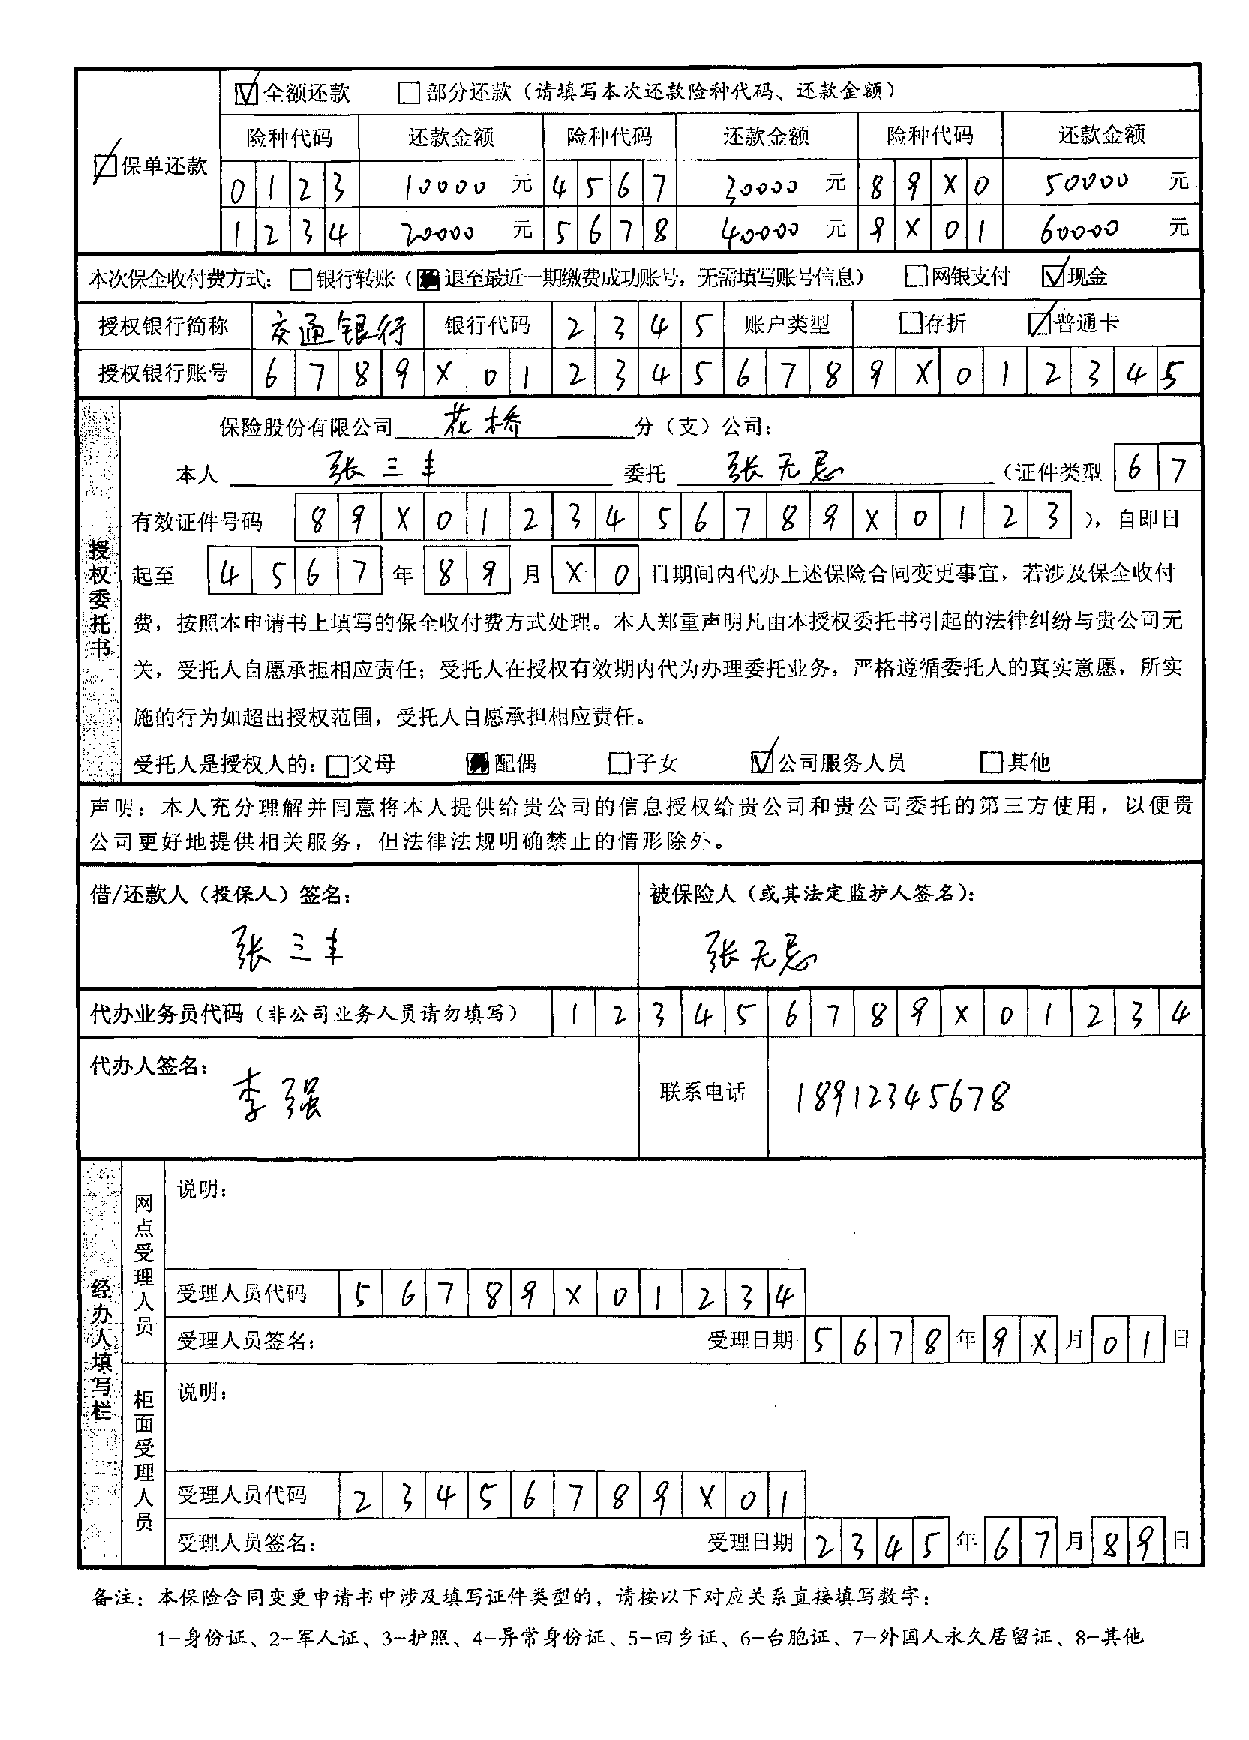 ☑全额还款 □部分还款（请填写本次还款险种代码、还款金额）
☑保单还款
险种代码 还款金额 险种代码 还款金额 险种代码 还款金额
0123 10000 元 4567 30000 元 89X0 50000 元
1234 20000 元 5678 40000 元 9X01 60000 元
本次保全收付费方式：□银行转账（■退至最近一期缴费成功账号，无需填写账号信息） □网银支付 ☑现金
授权银行简称 交通银行 银行代码 2345 账户类型 □存折 ☑普通卡
授权银行账号 6789X0123456789X012345
授权委托书
保险股份有限公司 花桥 分（支）公司：
本人 张三丰 委托 张无忌 （证件类型 67
有效证件号码 89X0123456789X0123 ），自即日
起至 4567 年 89 月 X0 日期间内代办上述保险合同变更事宜，若涉及保全收付
费，按照本申请书上填写的保全收付费方式处理。本人郑重声明凡由本授权委托书引起的法律纠纷与贵公司无
关，受托人自愿承担相应责任；受托人在授权有效期内代为办理委托业务，严格遵循委托人的真实意愿，所实
施的行为如超出授权范围，受托人自愿承担相应责任。
受托人是授权人的：□父母 ■配偶 □子女 ☑公司服务人员 □其他
声明：本人充分理解并同意将本人提供给贵公司的信息授权给贵公司和贵公司委托的第三方使用，以便贵
公司更好地提供相关服务，但法律法规明确禁止的情形除外。
借/还款人（投保人）签名： 被保险人（或其法定监护人签名）：
张三丰 张无忌
代办业务员代码（非公司业务人员请勿填写） 123456789X01234
代办人签名：
李强 联系电话 18912345678
经办人填写栏
网点受理人员
说明：
受理人员代码 56789X01234
受理人员签名： 受理日期 5678 年 9X 月 01 日
柜面受理人员
说明：
受理人员代码 23456789X01
受理人员签名： 受理日期 2345 年 67 月 89 日
备注：本保险合同变更申请书中涉及填写证件类型的，请按以下对应关系直接填写数字：
1-身份证、2-军人证、3-护照、4-异常身份证、5-回乡证、6-台胞证、7-外国人永久居留证、8-其他